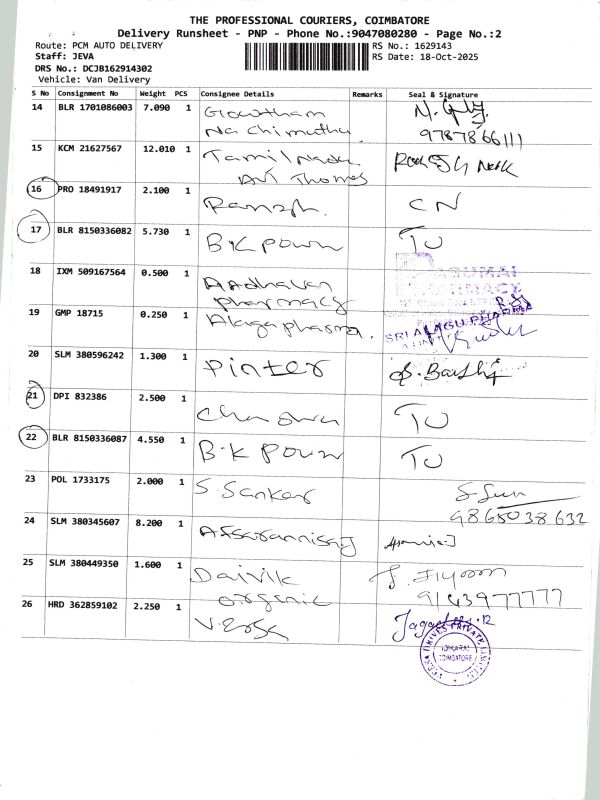 THE PROFESSIONAL COURIERS, COIMBATORE
Delivery Runsheet - PNP - Phone No.:9047080280 - Page No.:2
Route: PCM AUTO DELIVERY
RS No.: 1629143
Staff: JEVA
RS Date: 18-Oct-2025
DRS No.: DCJB162914302
Vehicle: Van Delivery
S No Consignment No Weight PCS Consignee Details Remarks Seal & Signature
14 BLR 1701086003 7.090 1 Gowtham
Nachimuthu
9787866111
15 KCM 21627567 12.010 1 Tamil Nadu
Thomas
16 PRO 18491917 2.100 1 CN
17 BLR 8150336082 5.730 1 BK Pown TO
18 IXM 509167564 0.500 1 Aadhavan
pharmacy
PHARMACY
19 GMP 18715 0.250 1 Alaga pharma.
SRI ALAGU PHARMA
20 SLM 380596242 1.300 1 Pinter
21 DPI 832386 2.500 1 TO
22 BLR 8150336087 4.550 1 B.K Pown TO
23 POL 1733175 2.000 1 S. Sankar
9865038632
24 SLM 380345607 8.200 1
25 SLM 380449350 1.600 1 Daivik
organic
9143977777
26 HRD 362859102 2.250 1
COIMBATORE